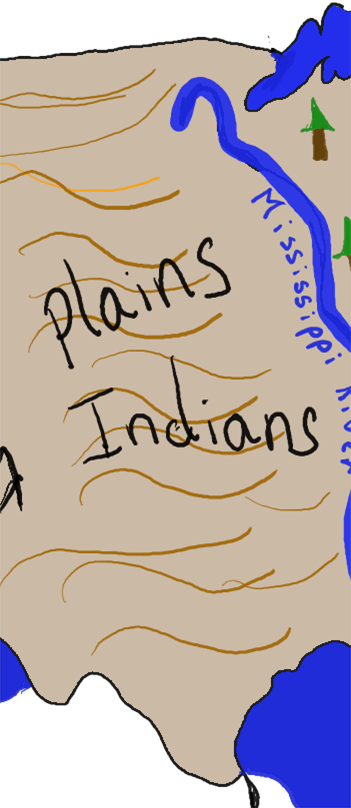 plains
Indians
Mississippi
River